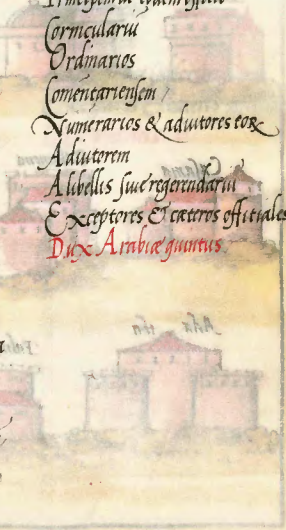 Principem de eodem officio
Cornicularium
Ordinarios
Comentariensem
Numerarios & adiutores eor
Adiutorem
Alibellis siue regerendariu
Exceptores & cæteros offitiales
Dux Arabiæ quintus